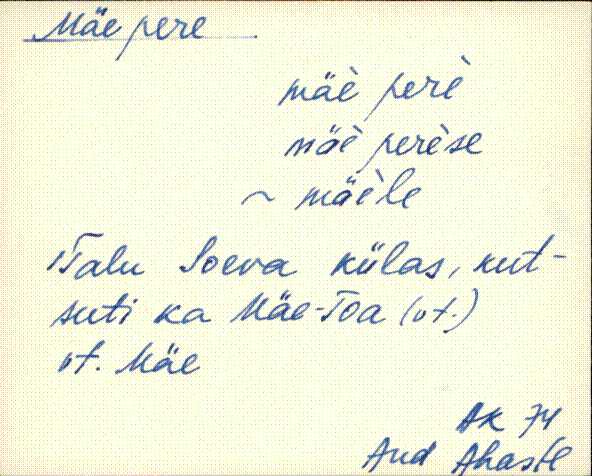 Mäe pere
mäè perè
mäè perèse
~ mäèle
Talu Soeva külas, kut-
suti ka Mäe-Toa (vt.)
vt. Mäe
AK 74
And Ahaste